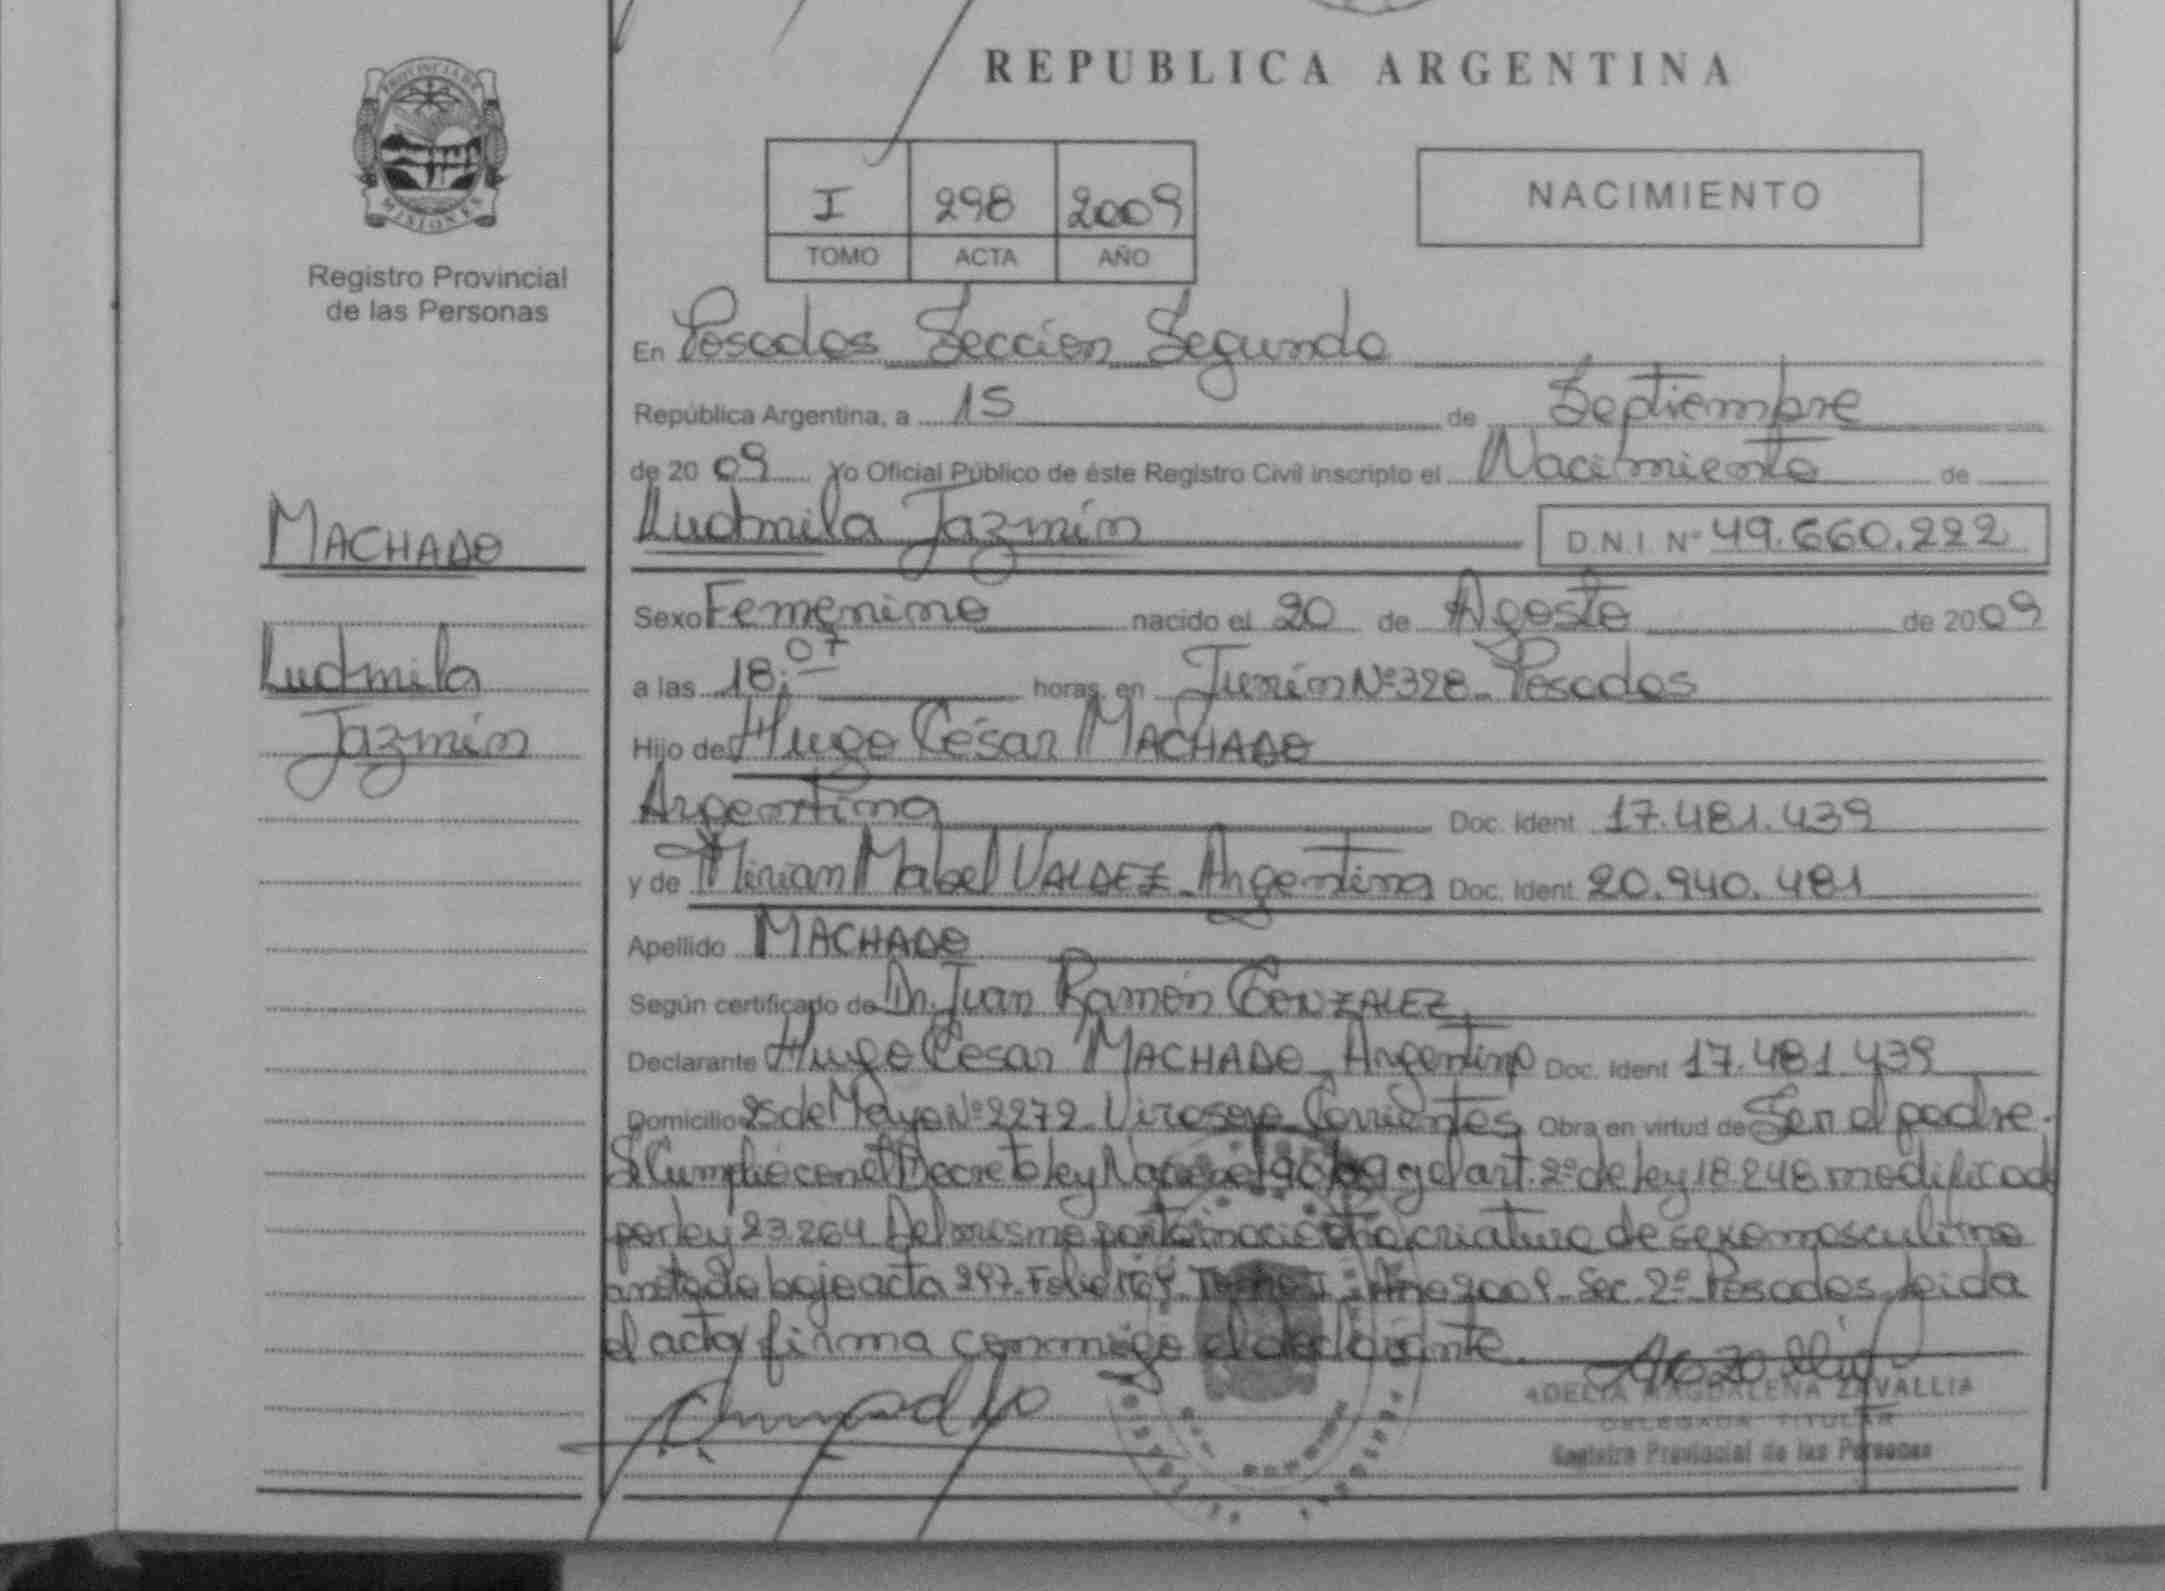 REPUBLICA ARGENTINA
PROVINCIA DE
MISIONES
Registro Provincial
de las Personas
I 298 2009
TOMO ACTA AÑO
NACIMIENTO
En Posadas Sección Segunda
República Argentina, a 15 de Septiembre
de 20 09 Yo Oficial Público de éste Registro Civil inscripto el Nacimiento de
MACHADO
Ludmila Jazmín D.N.I. Nº 49.660.222
Sexo Femenino nacido el 20 de Agosto de 20 09
Ludmila
a las 18:07 horas, en Junín Nº 328 - Posadas
Jazmín
Hijo de Hugo César MACHADO
Argentina Doc. Ident. 17.481.439
y de Mirian Mabel VALDEZ - Argentina Doc. Ident. 20.940.481
Apellido MACHADO
Según certificado de Dr. Juan Ramón GONZALEZ
Declarante Hugo Cesar MACHADO - Argentino Doc. Ident 17.481.439
Domicilio 25 de Mayo Nº 2272 - Virasoro - Corrientes Obra en virtud de Ser el padre.
Se Cumplió con el Decreto ley y el art. 2º de ley 18.248 modificad
por ley 23.264 Del mismo parto nació otra criatura de sexo masculino
anotado bajo acta 297 - Folio Tomo I - Año 2009 - Sec. 2º Posadas, leida
el acta firma conmigo el declarante.
ADELIA MAGDALENA ZAVALLIA
DELEGADA TITULAR
Registro Provincial de las Personas